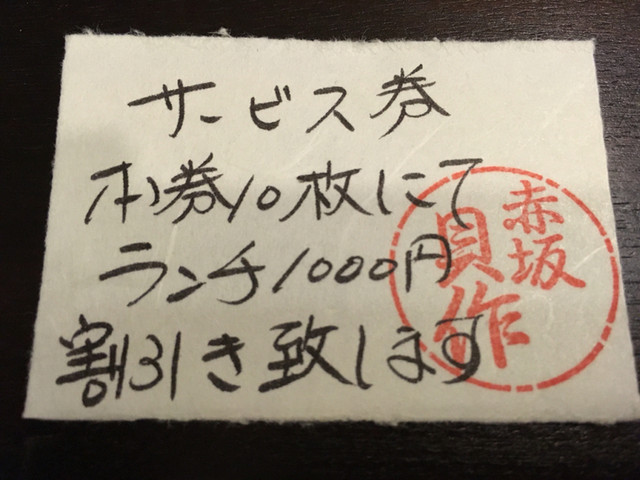 サービス券
本券10枚にて
ランチ1000円
割引き致します
赤坂
貝作